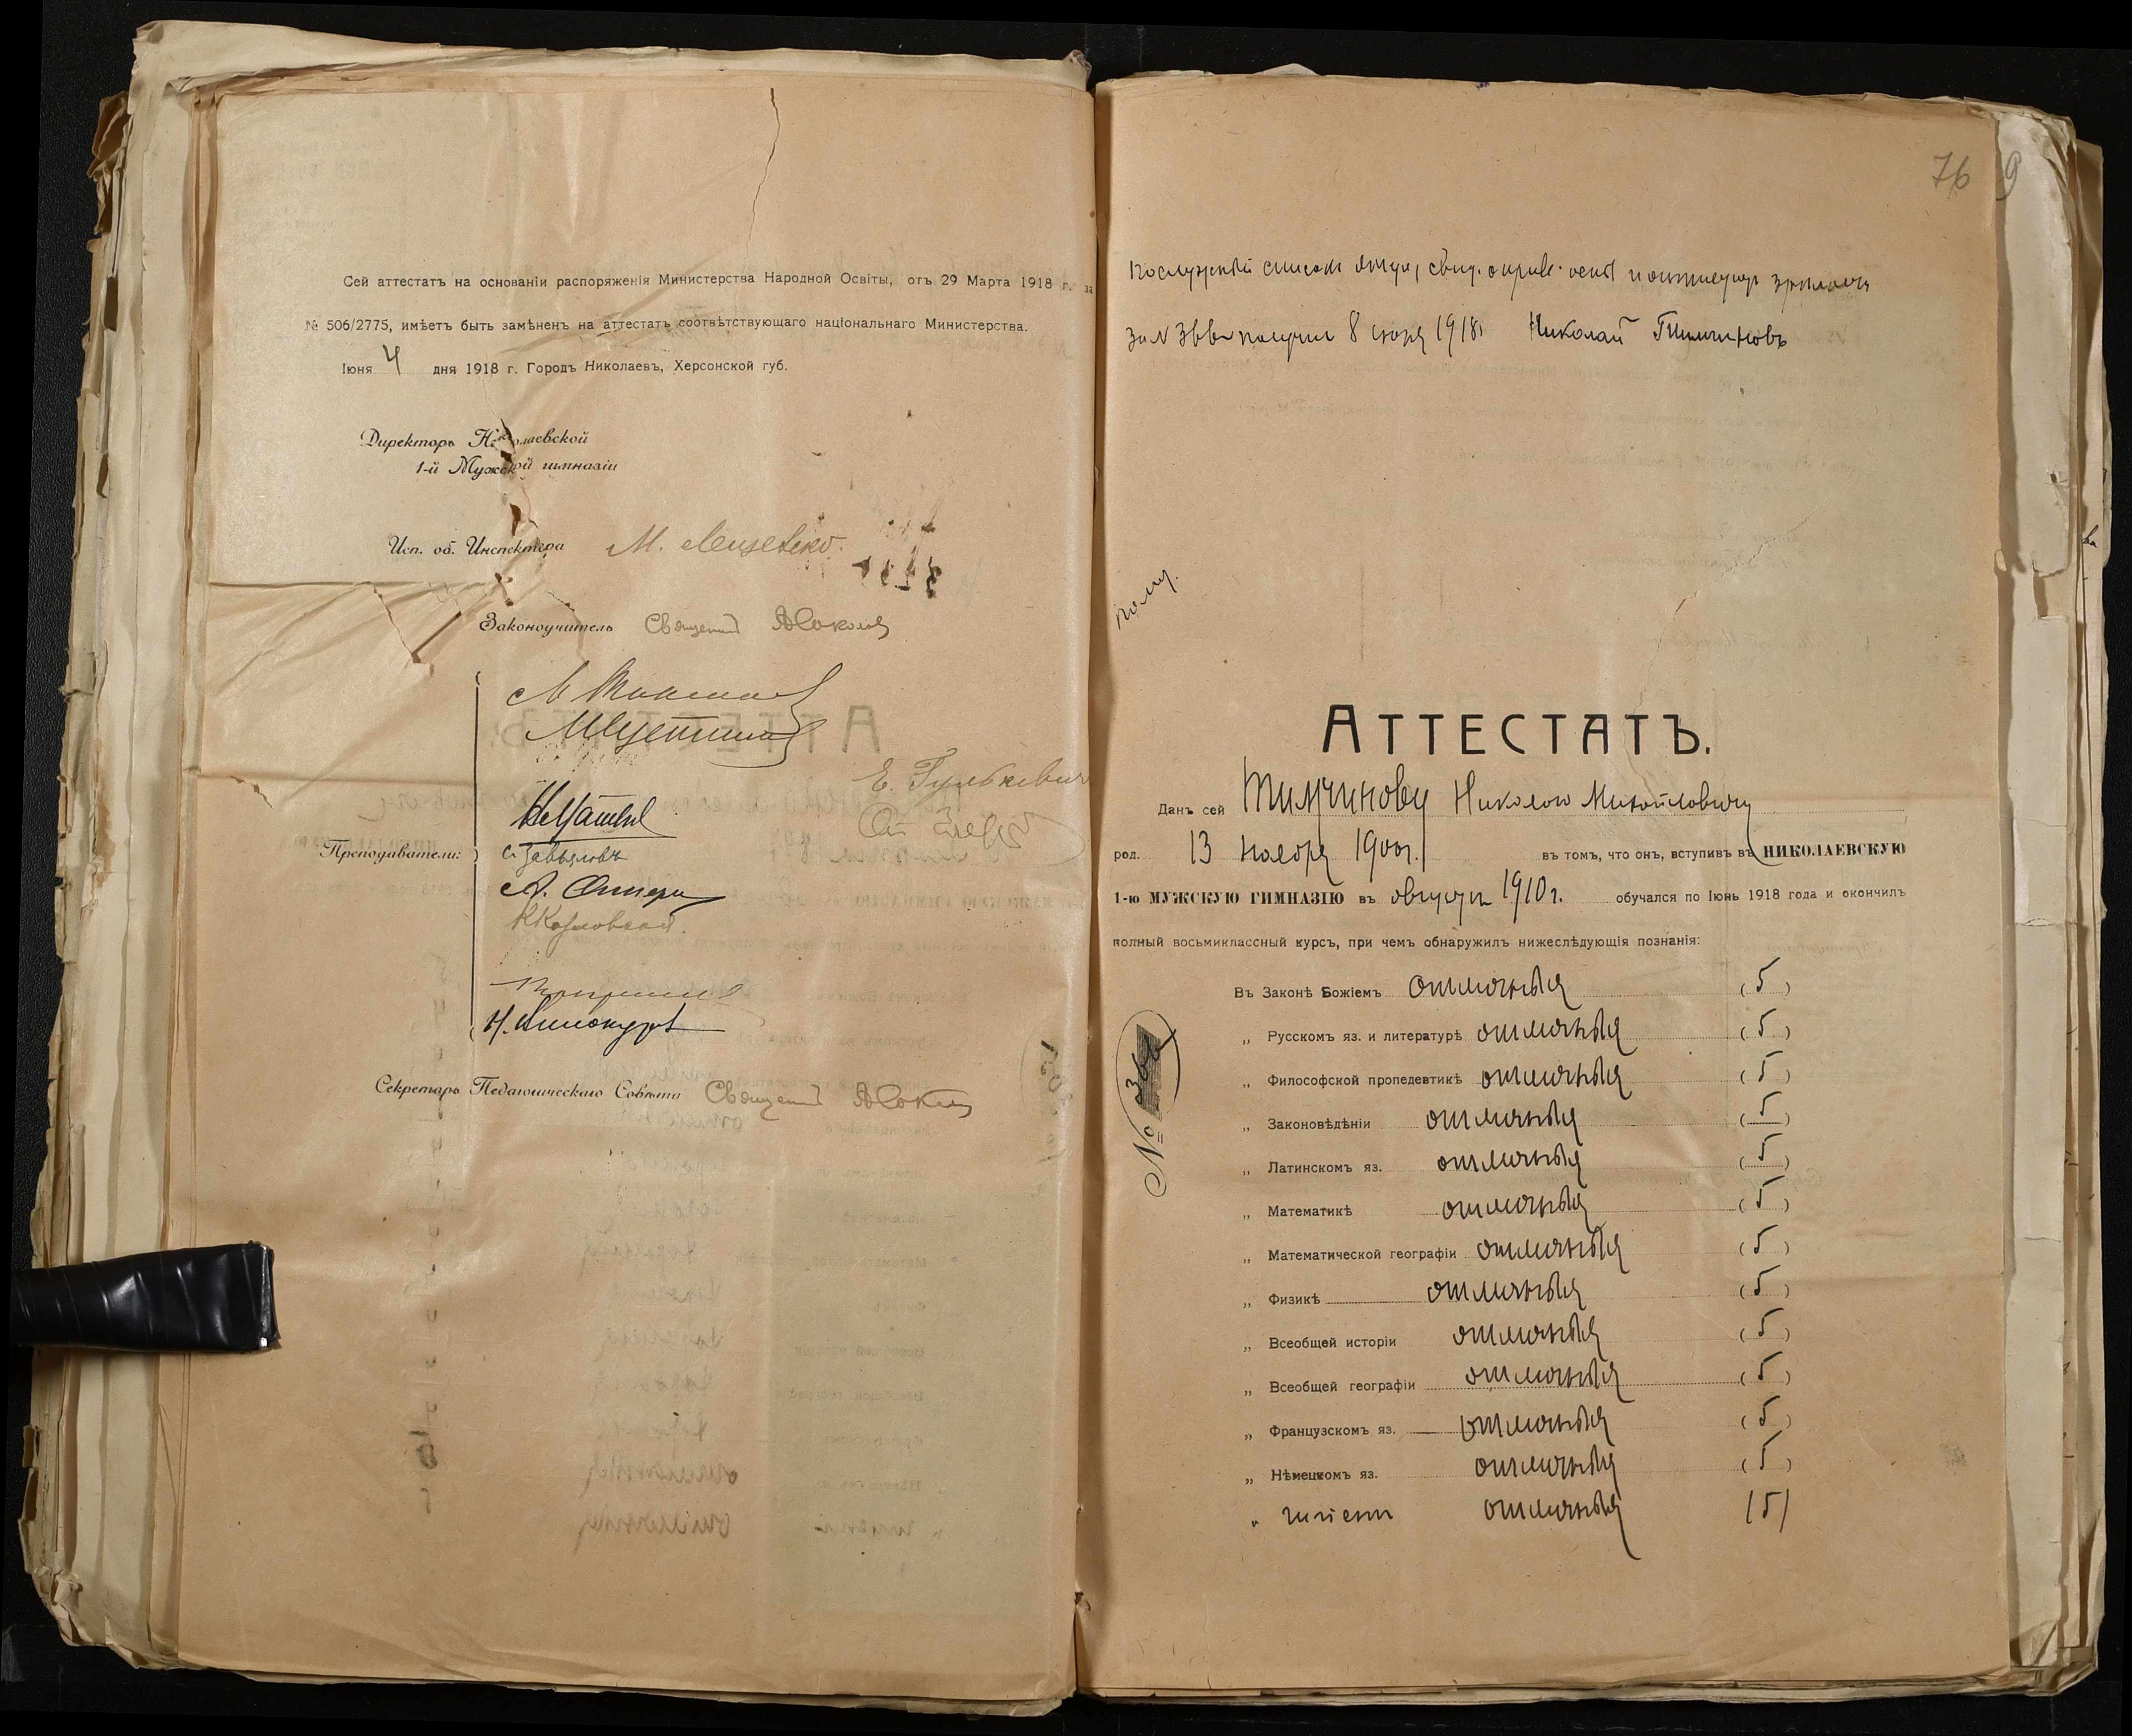 Сей аттестатъ на основаніи распоряженія Министерства Народной Освіты, отъ 29 Марта 1918 г. за
№ 506/2775, имѣетъ быть замѣненъ на аттестатъ соотвѣтствующаго національнаго Министерства.
Іюня 4 дня 1918 г. Городъ Николаевъ, Херсонской губ.
Директоръ Николаевской
1-й Мужской гимназіи
Исп. об. Инспектора М.
Законоучитель Священникъ
Е. Гулькевич
Преподаватели: С. Завьяловъ
К. Козловская
Секретарь Педагогическаго Совѣта Священникъ
76 9
Послужной списокъ отца, свид. о крив. оспы и аттестатъ зрѣлости
за № получилъ 8 іюня 1918 Николай Тимчиновъ
АТТЕСТАТЪ.
Данъ сей Тимчинову Николаю Михайловичу
род. 13 ноября 1900 г. въ томъ, что онъ, вступивъ въ НИКОЛАЕВСКУЮ
1-ю МУЖСКУЮ ГИМНАЗІЮ въ августѣ 1910 г. обучался по Іюнь 1918 года и окончилъ
полный восьмиклассный курсъ, при чемъ обнаружилъ нижеслѣдующія познанія:
Въ Законѣ Божіемъ отличныя (5)
„ Русскомъ яз. и литературѣ отличныя (5)
„ Философской пропедевтикѣ отличныя (5)
„ Законовѣдѣніи отличныя (5)
„ Латинскомъ яз. отличныя (5)
„ Математикѣ отличныя (5)
„ Математической географіи отличныя (5)
„ Физикѣ отличныя (5)
„ Всеобщей исторіи отличныя (5)
„ Всеобщей географіи отличныя (5)
„ Французскомъ яз. отличныя (5)
„ Нѣмецкомъ яз. отличныя (5)
„ гигіенѣ отличныя (5)
№